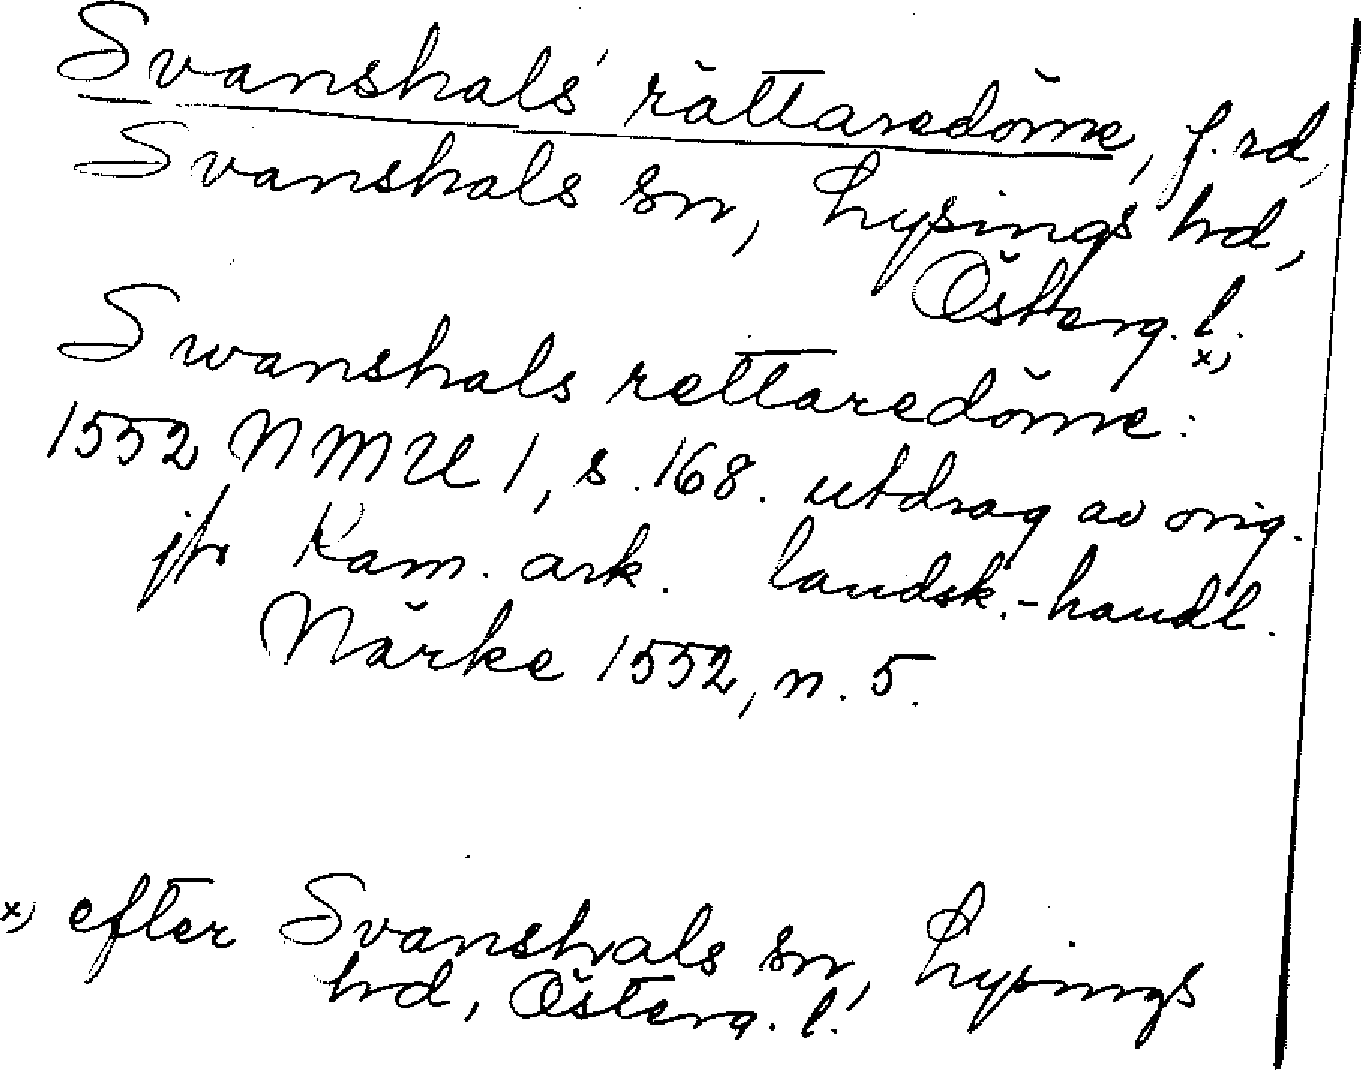 Svanshals' rättaredöme, f. rd,
Svanshals sn, Lysings hd,
Österg. l.
Swanshals rettaredöme: x)
1552 NMU 1, s. 168. utdrag av orig.
jfr Kam. ark. landsk.-handl.
Närke 1552, n. 5.
x) efter Svanshals sn, Lysings
hd, Österg. l.